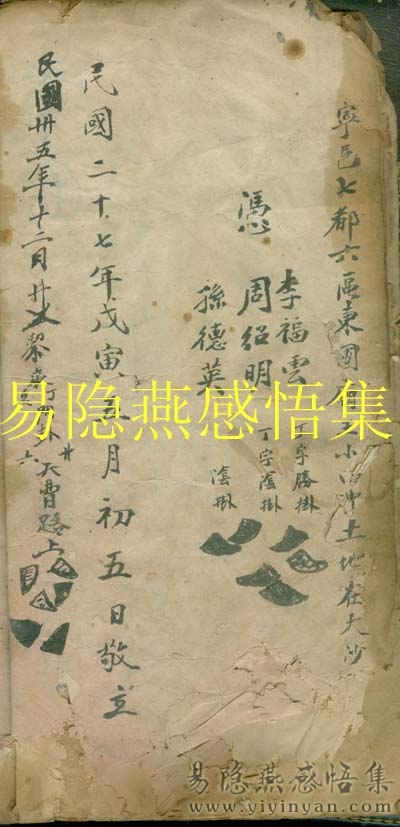 寧邑七都六區東團
小沖土地在大沙
憑
李福雲
丁字勝掛
周紹明
丁字陰掛
孫德英
陰掛
民國二十七年戊寅
月初五日敬立
民國卅五年十二月廿
黎
六
天曹路上
易隐燕感悟集
易隐燕感悟集
www.yiyinyan.com